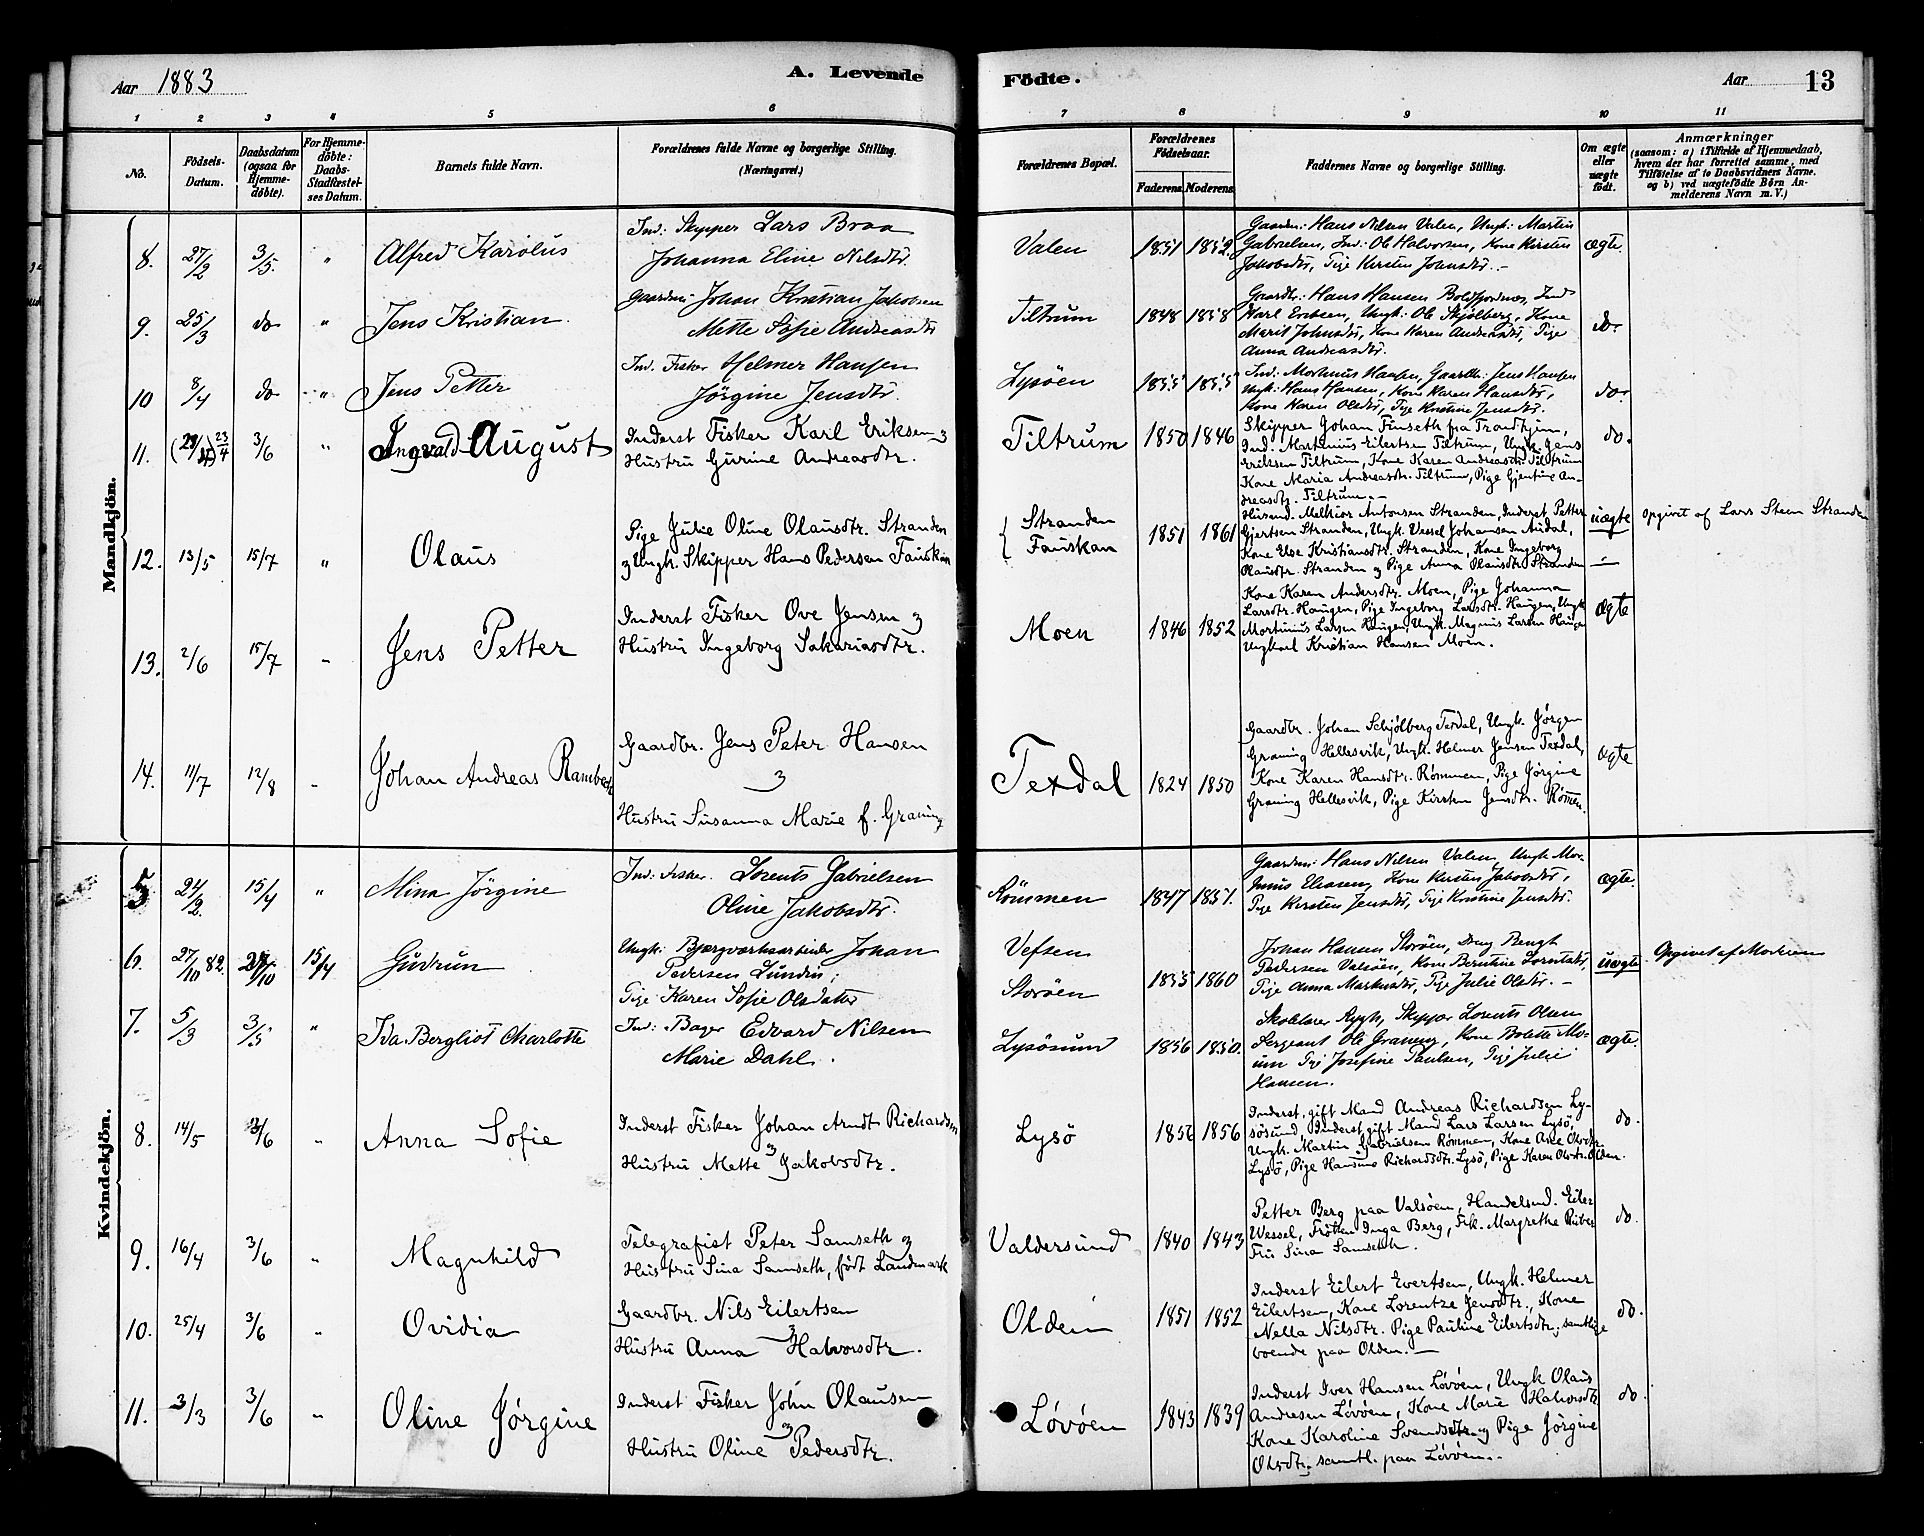 Aar 1883
A. Levende
Födte.
Aar 13
1 2 3 4 5 6 7 8 9 10 11
No.
Födsels-Datum.
Daabsdatum (ogsaa for Hjemme-döbte).
For Hjemme-döbte: Daabs-Stadfæstel-ses Datum.
Barnets fulde Navn.
Forældrenes fulde Navne og borgerlige Stilling. (Næringsvei.)
Forældrenes Bopæl.
Forældrenes Födselsaar.
Faderens. Moderens.
Faddernes Navne og borgerlige Stilling.
Om ægte eller uægte födt.
Anmærkninger
(saasom: a) i Tilfælde af Hjemmedaab,
hvem der har forrettet samme, med
Tilföielse af to Daabsvidners Navne.
og b) ved uægtefödte Börn An-
melderens Navn m. V.)
Mandkjön.
8. 27/2 3/5. " Alfred Karolus
Ind: Skipper Lars Braa
Johanna Eline Nilsdtr.
Valen 1851 1852.
Gaardm: Hans Nilsen Valen, Ungk: Martin
Gabrielsen, Ind: Ol Halvorsen, Kone Kirsten
Jakobsdtr, Pige Kirsten Johnsdtr. –
ægte.
9. 25/3 do " Jens Kristian
Gaardm: Johan Kristian Jakobsen
Mette Sofie Andreasdtr
Tiltrum 1848 1858
Gaardbr: Hans Hansen Boldfjordnes, Ind
Karl Eriksen, Ungk: Ole Skjölberg, Kone
Marit Johnsdtr, Kone Karen Andreasdtr, Pige
Anna Andreasdtr.
do.
10 8/4 do " Jens Petter
Ind. Fisker Helmer Hansen
Jörgine Jensdtr.
Lysöen 1855 1855
Ind: Morthnus Hansen, Gaardbr: Jens Hansen
Ungk: Hans Hansen, Kone Karen Hansdtr,
Kone Karen Olsdtr, Pige Kristine Jensdtr.
do.
11. 23/4 3/6 " Ingvald August
Inderst Fisker Karl Eriksen og
Hustru Gurine Andreasdtr.
Tiltrum 1850 1846
Skipper Johan Finseth fra Trondhjem,
Ind. Martinius Eilertsen Tiltrum, Ungk. Jens
Eriksen Tiltrum, Kone Karen Andreasdtr. Tiltrum
Kone Maria Andreasdtr. Tiltrum, Pige Gjertine An-
dreasdtr. Tiltrum. –
do.
12. 13/5 15/7 " Olaus
Pige Julie Oline Olausdtr. Stranden
og Ungk. Skipper Hans Pedersen Fauskan
Stranden
Fauskan
1851 1861
Husmd. Melkior Antonsen Stranden, Inderst Petter
Gjertsen Stranden, Ungk. Vessel Johansen Audal,
Kone Else Kristiansdtr. Stranden, Kone Ingeborg
Olausdtr. Stranden og Pige Anna Olausdtr. Stranden
uægte
Opgivet af Lars Steen Stranden
13. 2/6 15/7 " Jens Petter
Inderst Fisker Ove Jensen og
Hustru Ingeborg Sakariasdtr.
Moen 1846 1852
Kone Karen Andersdtr. Moen, Pige Johanna
Larsdtr. Haugen, Pige Ingeborg Larsdtr. Haugen, Ungk.
Mortinus Larsen Haugen, Ungk. Magnus Larsen Haugen
Ungkarl Kristian Hansen Moen.
ægte
14. 11/7 12/8 " Johan Andreas Rambech
Gaardbr. Jens Peter Hansen
og
Hustru Susanna Marie f. Graning
Texdal 1824 1850
Gaardbr. Johan Schjölberg Texdal, Ungk. Jörgen
Graning Hellesvik, Ungk. Helmer Jensen Texdal,
Kone Karen Hansdtr. Römmen, Pige Jörgine
Graning Hellesvik, Pige Kirsten Jensdtr. Römmen.
ægte
Kvindekjön.
5 24/2. 15/4 " Mina Jörgine
Ind: Fisker. Lorents Gabrielsen
Oline Jakobsdtr.
Römmen 1847 1851.
Gaardm: Hans Nilsen Valen, Ungk Mor-
tinus Eliasen, Kone Kirsten Jakobsdtr,
Pige Kirsten Jensdtr, Pige Kristine Jensdtr.
ægte.
6. 27/10 82. 28/10 15/4 Gudrun
Ungk: Bjergværksarbeider Johan
Pedersen Lundin;
Pige Karen Sofie Olsdatter
Vefsen
Storöen
1855 1860
Johan Hansen Storöen, Dreng Bengt
Pedersen Valsöen, Kone Berntine Lorntsdtr,
Pige Anna Markusdtr, Pige Julie Olsdtr. –
uægte.
Opgivet af Moderen
7. 5/3 3/5 " Ida Bergliot Charlotte
Ind: Bager Edvard Nilsen
Marie Dahl.
Lysösund 1856 1850.
Skolelærer Rygh, Skipper Lorents Olsen
Sergeant Ole Graning, Kone Bolette Mo-
um Pige Josefine Paulsen, Pige Julie
Hansen.
ægte.
8. 14/5 3/6 " Anna Sofie
Inderst Fisker Johan Arndt Richardsen
og
Hustru Mette Jakobsdtr.
Lysö 1856 1856
Inderst, gift Mand Andreas Richardsen Ly-
sösund, Inderst, gift Mand Lars Larsen Lysö,
Ungk. Martin Gabrielsen Römmen, Kone Ane Olsdtr.
Lysö, Pige Hansine Richardsdtr. Lysö, Pige Karen Olsdtr. Olden.
do.
9. 16/4 3/6 " Magnhild
Telegrafist Peter Samseth og
Hustru Sina Samseth, født Landmark
Valdersund 1840 1843
Petter Berg paa Valsöen, Handelsmd. Eiler
Wessel, Fröken Inga Berg, Frk. Margrethe Riiber
Fru Sina Samseth.
do.
10. 25/4 3/6 " Ovidia
Gaardbr. Nils Eilertsen
og
Hustru Anna Halvorsdtr.
Olden 1851 1852
Inderst Eilert Evertsen, Ungk. Helmer
Eilertsen, Kone Lorentze Jensdtr., Kone
Nella Nilsdtr. Pige Pauline Eilertsdtr; samtlige
boende paa Olden. –
do.
11. 3/3 3/6 " Oline Jörgine
Inderst Fisker John Olausen
og
Hustru Oline Pedersdtr.
Lövöen 1843 1839
Inderst Iver Hansen Lövöen, Ungk Olaus
Andresen Lövöen, Kone Marie Halvorsdtr
Kone Karoline Svendsdtr. og Pige Jörgine
Olsdtr. samtl. paa Lövöen. –
do.